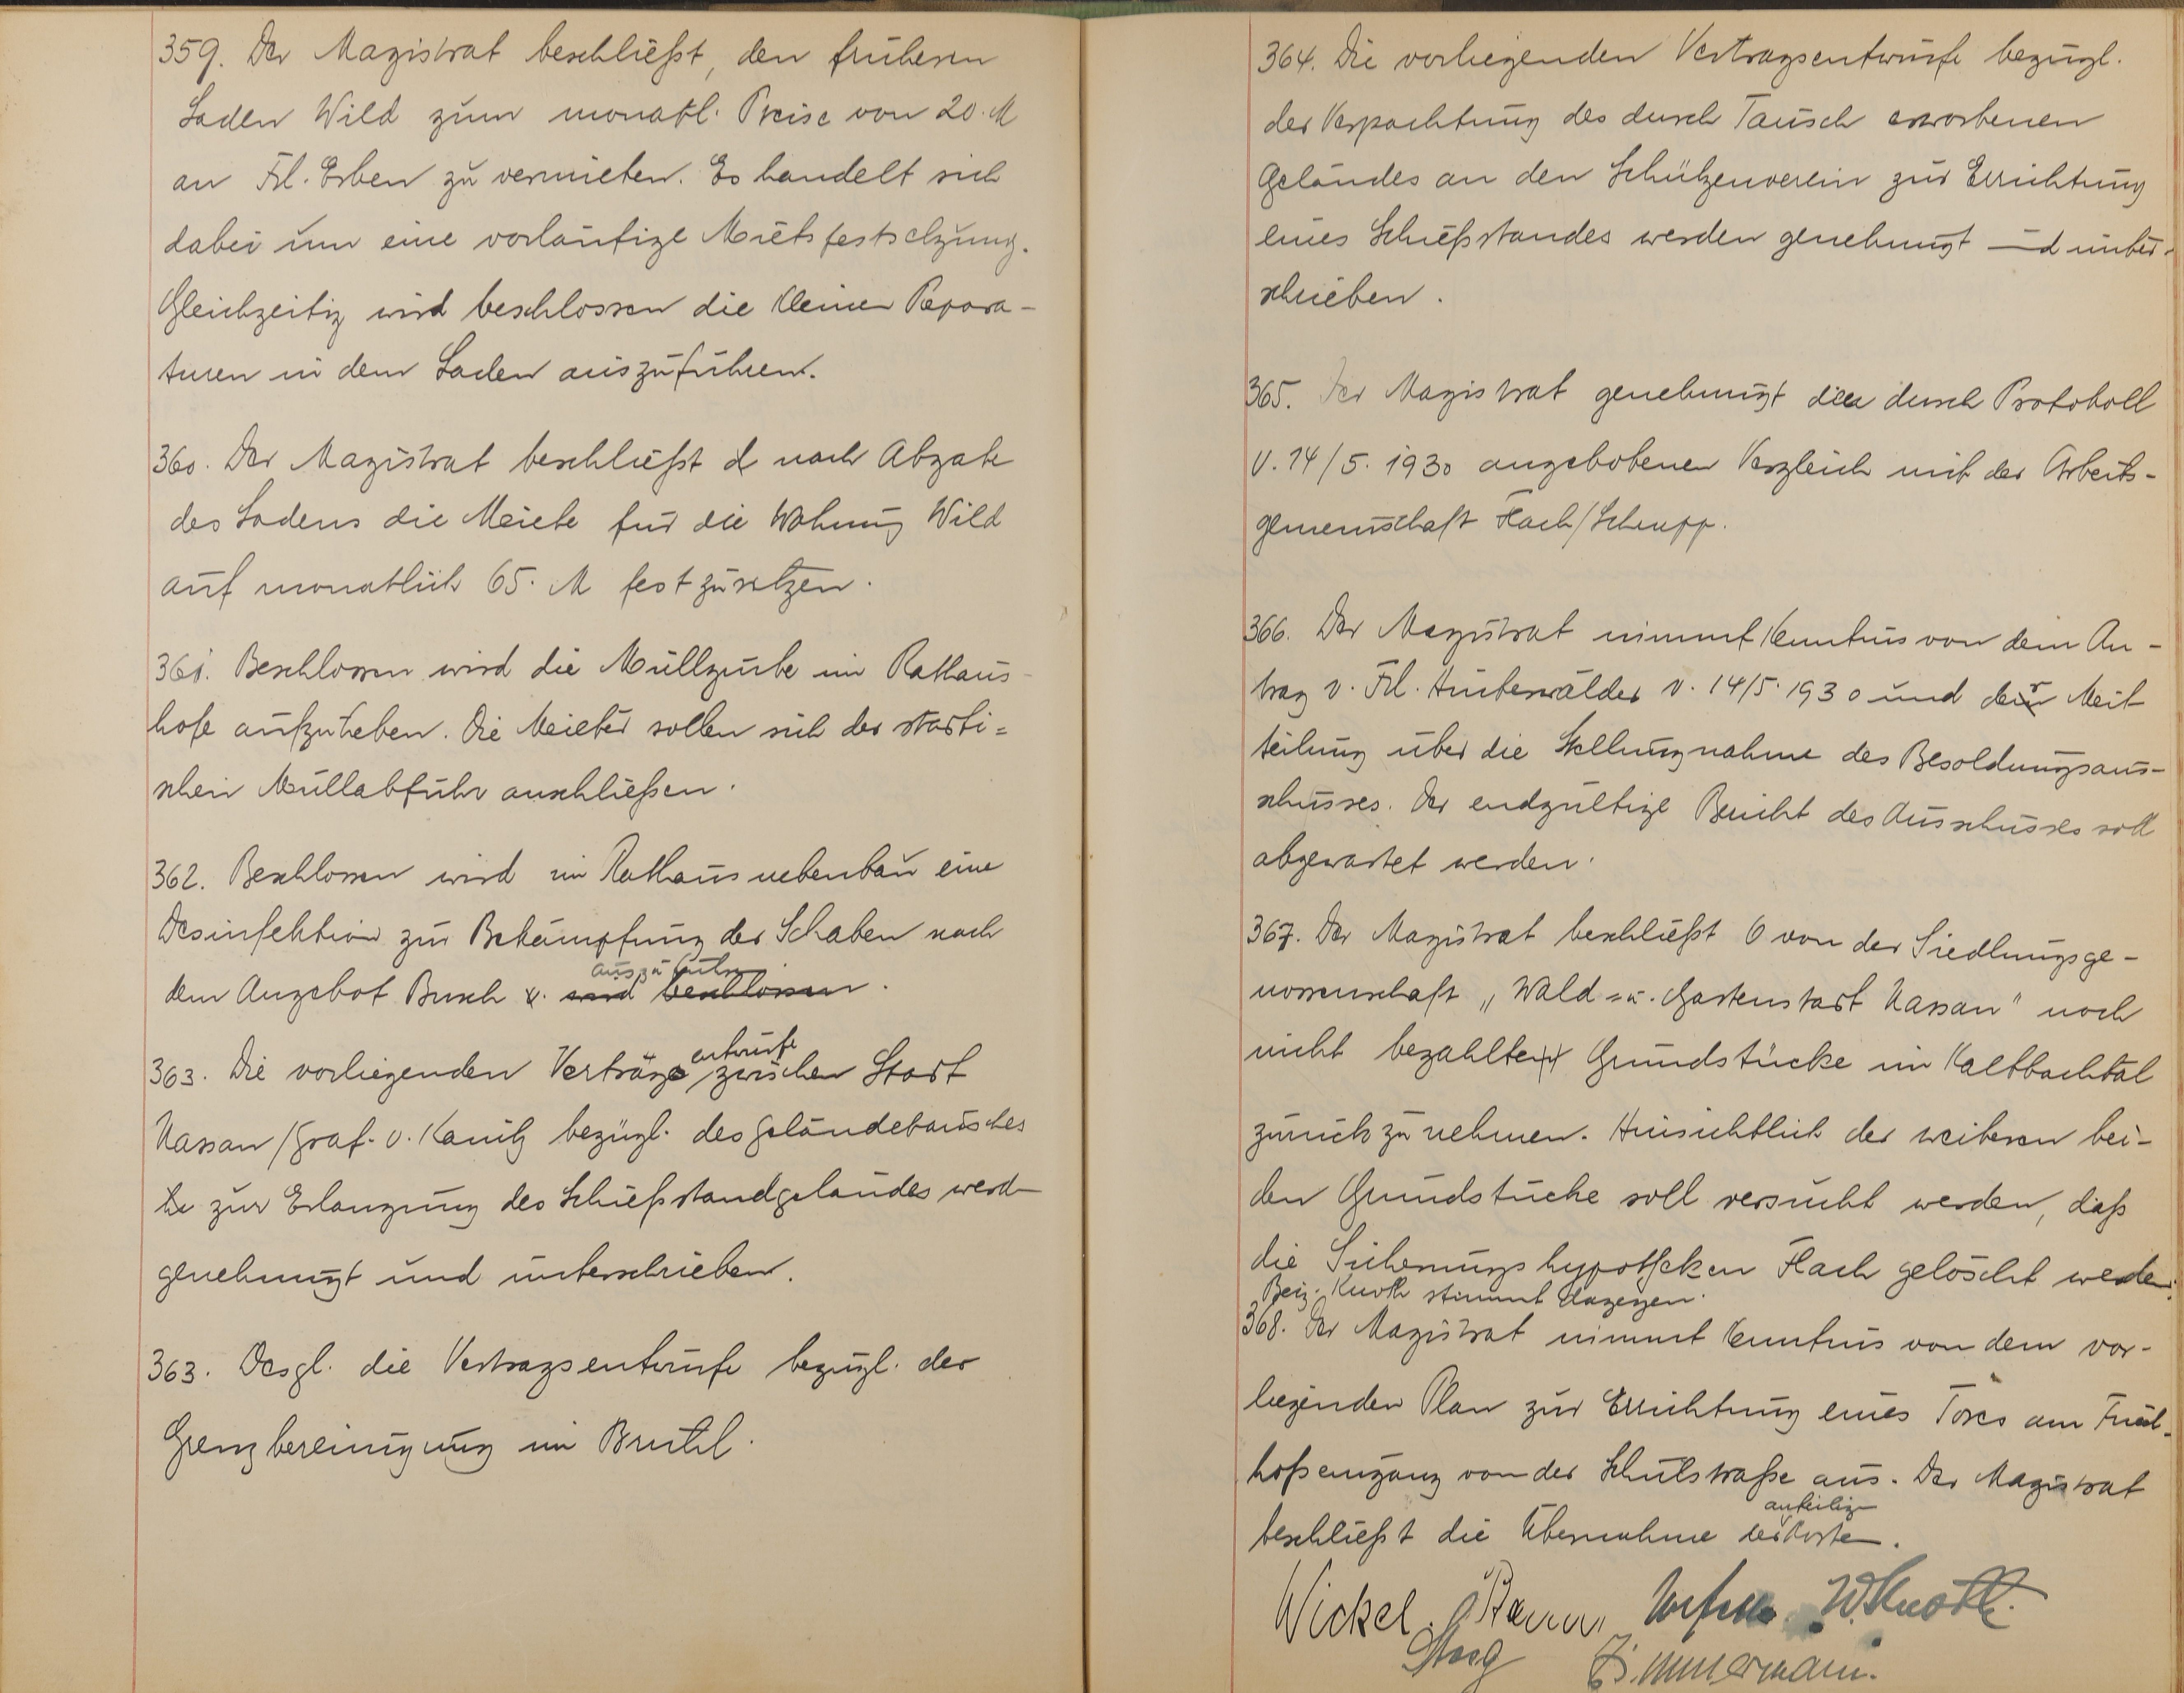 359. Der Magistrat beschließt, den früheren
Laden Wild zum monatl. Preise von 20. M
an Frl. Erben zu vermieten. Es handelt sich
dabei um eine vorläufige Mietsfestsetzung.
Gleichzeitig wird beschlossen die kleinen Repara-
turen in dem Laden auszuführen.
360. Der Magistrat beschließt d nach Abgabe
des Ladens die Meiete für die Wohnung Wild
auf monatlich 65. M festzusetzen.
361. Beschlossen wird die Müllgrube im Rathaus-
hofe aufzuheben. Die Meieter sollen sich der stasti=
schen Müllabfuhr anschließen.
362. Beschlossen wird im Rathausnebenbau eine
Desinfektion zur Bekämpfung der Schaben nach
auszuführen
dem Angebot Busch v. und beschlossen.
entwürfe
363. Die vorliegenden Verträge zwischen Stast
Nassau/Graf. v. Kanitz bezügl. des Geländetausches
zur Erlangung des Schießstandgeländes werden
genehmigt und unterschrieben.
363. Desgl. die Vertragsentwürfe bezügl. der
Grenzbereinigung im Brühl.
364. Die vorliegenden Vertragsentwürfe bezügl.
der Verpachtung des durch Tausch erworbenen
Geländes an den Schützenverein zur Errichtung
eines Schießstandes werden genehmigt und unter-
schrieben.
365. Der Magistrat genehmigt den durch Protokoll
v. 14/5. 1930 angebotenen Vergleich mit der Arbeits-
gemeinschaft Flach/Schrupp.
366. Der Magistrat nimmt Kenntnis von dem An-
trag v. Frl. Hinterwälder v. 14/5. 1930 und der Meit
teilung über die Stellungnahme des Besoldungsaus-
schusses. Der endgültige Bericht des Ausschusses soll
abgewartet werden.
367. Der Magistrat beschließt 6 von der Siedlungsge-
nossenschaft „Wald=u. Gartenstast Nassau" noch
nicht bezahlten Grundstücke im Kaltbachtal
zurückzunehmen. Hinsichtlich der weiteren bei-
den Grundstücke soll versucht werden, daß
die Sicherungshypotheken Flach gelöscht werden.
Beig. Knoth stimmt dagegen.
368. Der Magistrat nimmt Kenntnis von dem vor-
liegenden Plan zur Errichtung eines Tores am Fried-
hofseingang von der Schulstraße aus. Der Magistrat
anteiligen
beschließt die Übernahme der Kosten.
Wickel. W. Knoth.
Zimmermann.